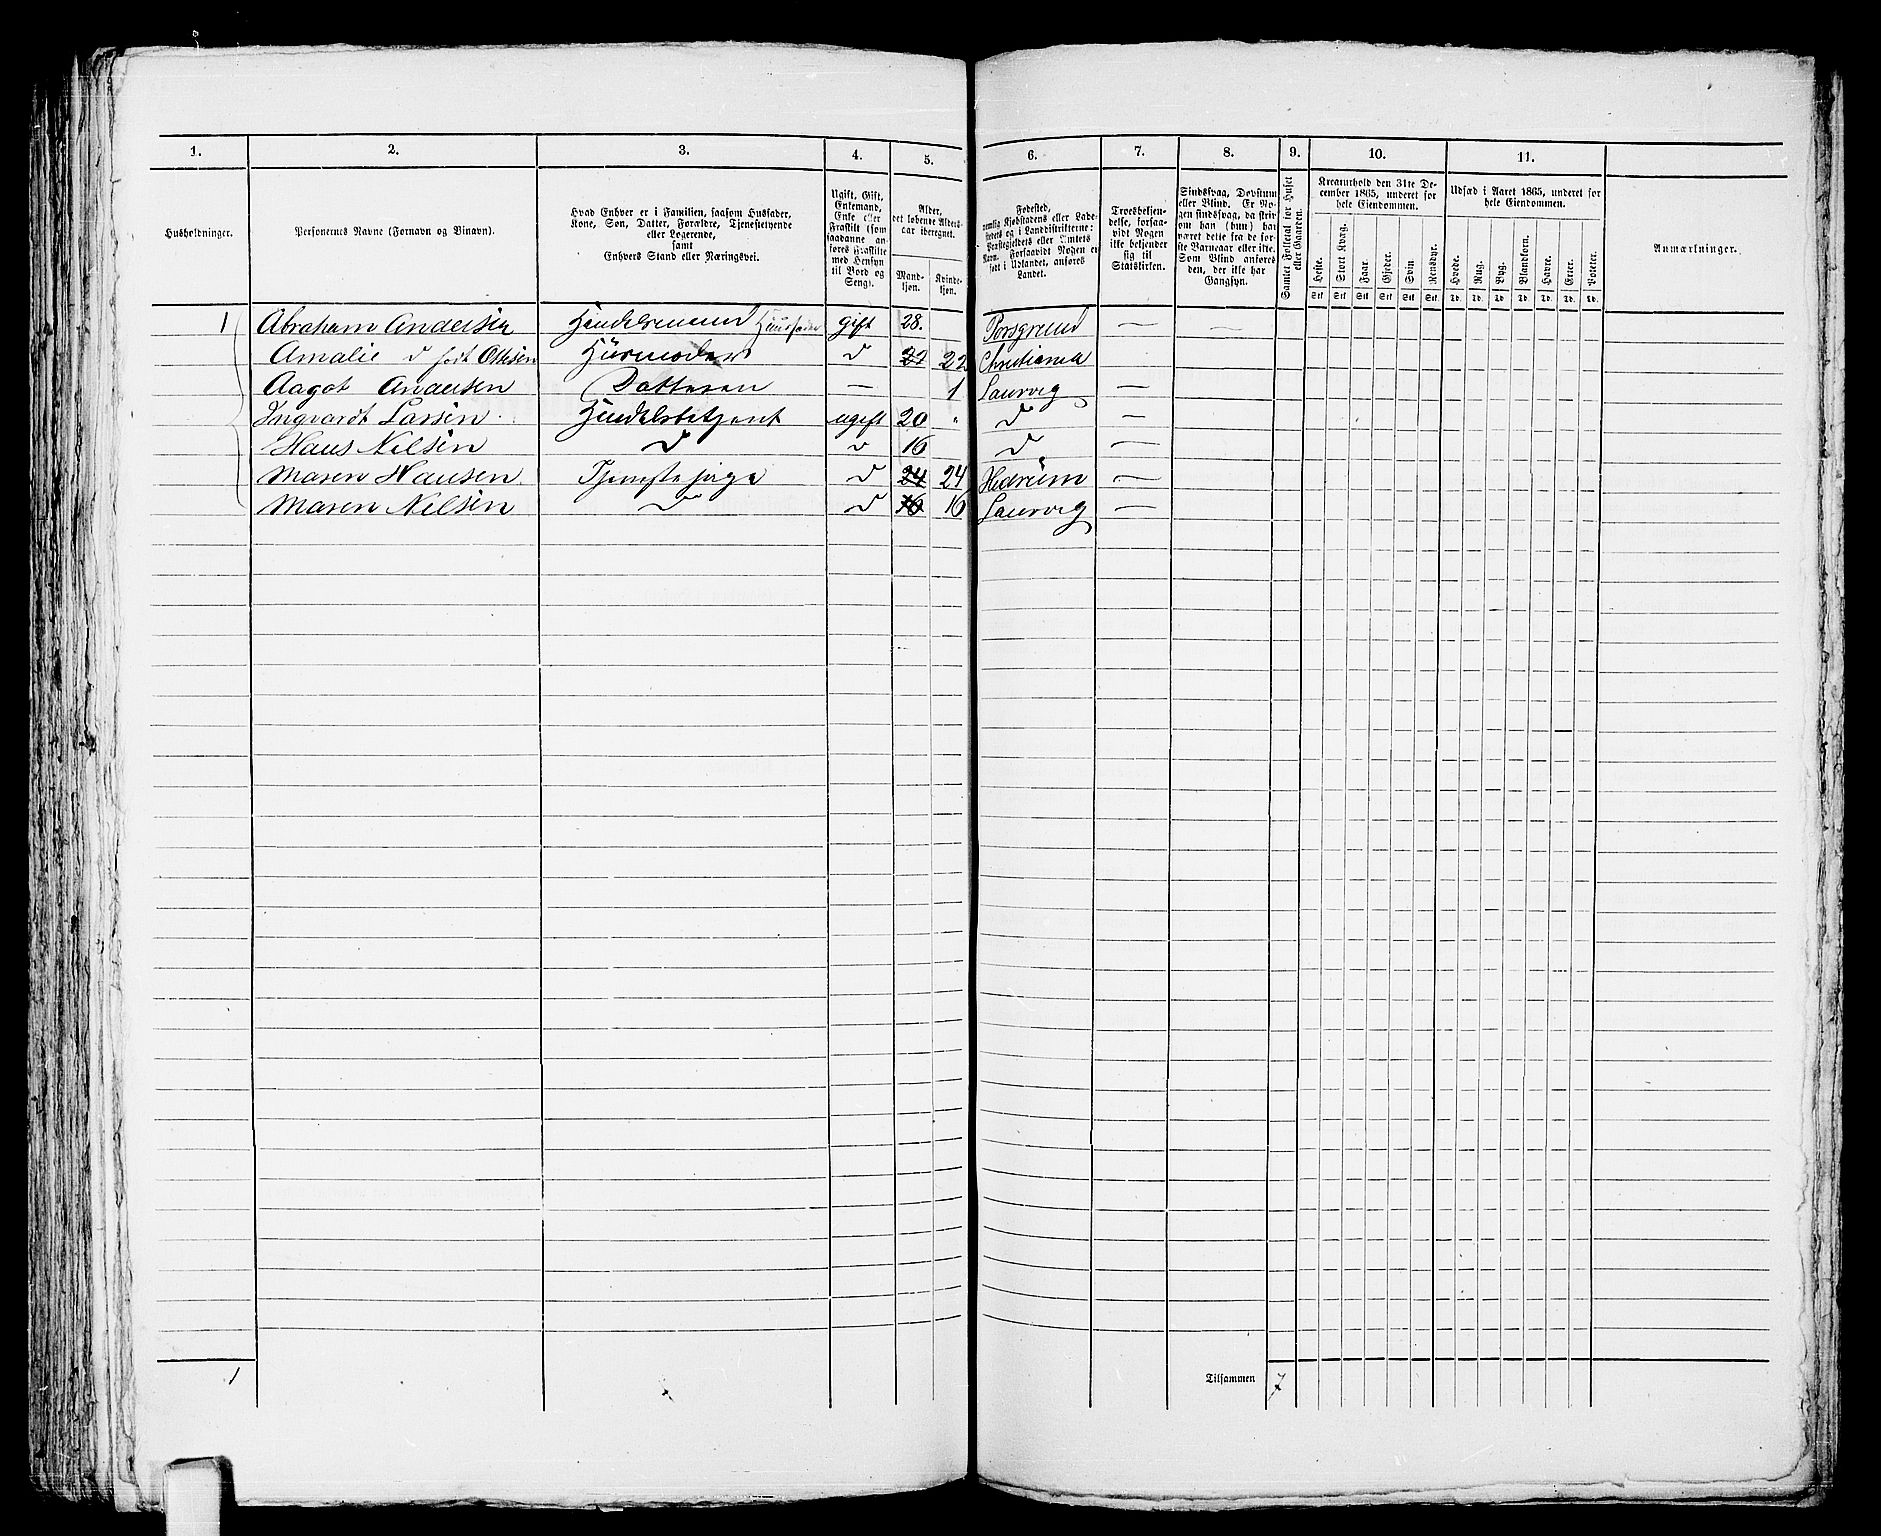 1. 2. 3. 4. 5. 6. 7. 8. 9. 10. 11.
Husholdninger.
Personernes Navne (Fornavn og Vinavn).
Hvad Enhver er i Familien, saasom Husfader,
Kone, Søn, Datter, Forældre, Tjenestetyende
eller Logerende,
samt
Enhvers Stand eller Næringsvei.
Ugift, Gift,
Enkemand,
Enke eller
Fraskilt (som
saadanne an-
føres Fraskilte
med Hensyn
til Bord og
Seng).
Alder,
det løbende Alders-
aar iberegnet.
Mand-
kjøn.
Kvinde-
kjøn.
Fødested,
nemlig Kjøbstadens eller Lade-
stedets og i Landdistrikterne:
Præstegjeldets eller Amtets
Navn. Forsaavidt Nogen er
født i Udlandet, anføres
Landet.
Troesbekjen-
delse, forsaa-
vidt Nogen
ikke bekjender
sig til
Statskirken.
Sindssvag, Døvstum
eller Blind. Er No-
gen sindssvag, da skriv
om han (hun) har
været dette fra de før-
ste Barneaar eller ikke.
Som Blind anføres
den, der ikke har
Gangsyn.
Samlet Folketal for Huset
eller Gaarden.
Kreaturhold den 31te De-
cember 1865, underet for
hele Eiendommen.
Heste. Stort Kvæg. Faar. Gjeder. Svin. Rensdyr.
Stk Stk Stk Stk Stk Stk
Udsæd i Aaret 1865, underet for
hele Eiendommen.
Hvede. Rug. Byg. Blandkorn. Havre. Erter. Poteter.
Td. Td. Td. Td. Td. Td. Td.
Anmærkninger.
1 Abraham Andersen Handelsmand Huusfader gift 28. Porsgrund — —
Amalie d født Ottesen Husmoder d 22 22 Christiania —
Aagot Andersen Datteren — 1 Laurvig —
Ingvardt Larsen. Handelsbetjent ugift 20 " d —
Hans Nilsen d d 16 d —
Maren Hansen Tjenestepige d 24 24 Hedrum —
Maren Nilsen d d 16 16 Laurvig —
1 Tilsammen 7